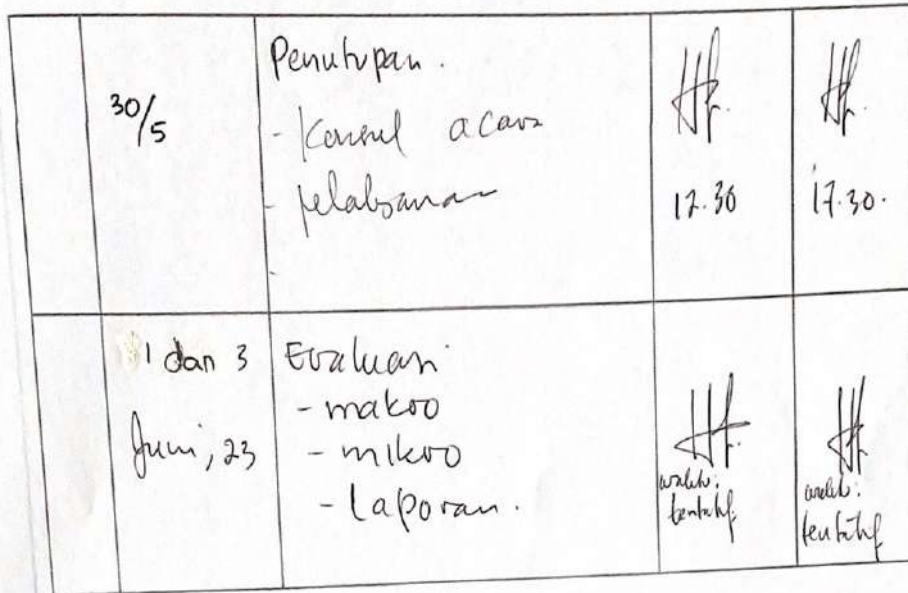 30/5
Penutupan.
- Konsul acara
- pelaksanaan
-
12.30
17.30.
1 dan 3
Juni, 23
Evaluasi
- makro
- mikro
- Laporan.
waktu:
tentatif
waktu:
tentatif